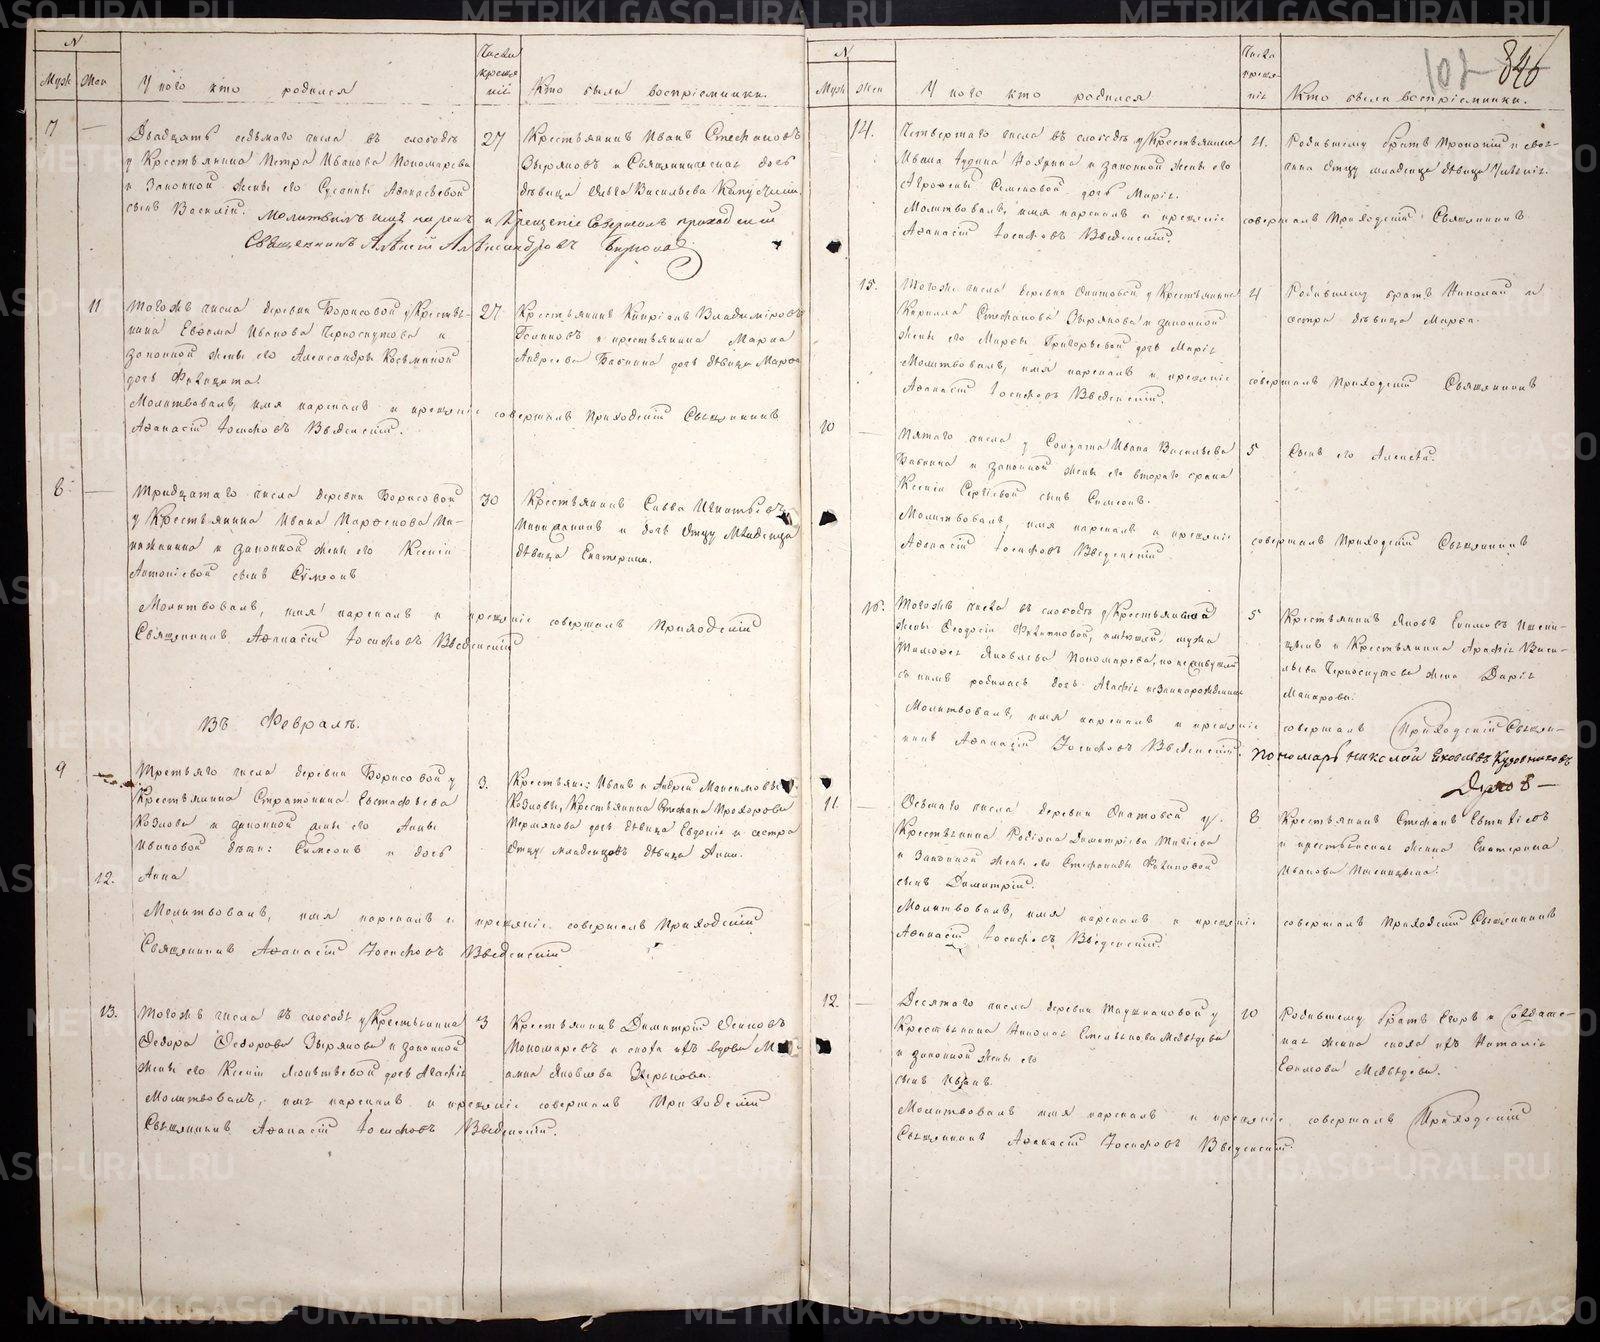 METRIKI.GASO-URAL.RU
N
Муж Жен
У кого кто родился
Число крещенія
Кто были воспріемники.
7 —
Двадцать седьмаго числа въ слободѣ
у Крестьянина Петра Иванова Пономарева
и Законной жены его Сусанны Аѳанасьевой
сынъ Василій. Молитвилъ имя нарекъ и Крещеніе Совершалъ приходскій
Священникъ Алексій Александровъ
27
Крестьянинъ Иванъ Стефановъ
Зыряновъ и Священническая дочь
дѣвица Ольга Васильева
11
Тогожъ числа деревни Борисовой у Крестья-
нина Ефрема Иванова Черноскутова и
законной жены его Александры Косьминой
дочь
Молитвовалъ, имя нарекалъ и крещеніе совершалъ Приходскій Священникъ
Аѳанасій Іосифовъ Введенскій.
27
Крестьянинъ Кипріанъ Владиміровъ
и крестьянина Марка
Андреева Бабкина дочь дѣвица
8 —
Тридцатаго числа деревни Борисовой
у Крестьянина Ивана Парѳенова
и законной жены его Ксеніи
Антоніевой сынъ Сѵмеонъ
Молитвовалъ, имя нарекалъ и крещеніе совершалъ Приходскій
Священникъ Аѳанасій Іосифовъ Введенскій
30
Крестьянинъ Савва Игнатьевъ
и дочь Отцу Младенца
дѣвица Екатерина.
Въ Февралѣ.
9
Третьяго числа деревни Борисовой у
Крестьянина Стратоника Евстафьева
Козлова и законной жены его Анны
Ивановой дѣти: Симеонъ и дочь
12. Анна
Молитвовалъ, имя нарекалъ и крещеніе совершалъ Приходскій
Священникъ Аѳанасій Іосифовъ Введенскій
3.
Крестьяне: Иванъ и Андрей Максимовы
Козловы, Крестьянина Стефана Прохорова
Пермякова дочь дѣвица Евдокія и сестра
Отцу младенцовъ дѣвица Анна.
13.
Тогожъ числа въ слободѣ у Крестьянина
Ѳедора Ѳедорова Зырянова и законной
жены его Ксеніи Леонтьевой дочь Агафія
Молитвовалъ, имя нарекалъ и крещеніе совершалъ Приходскій
Священникъ Аѳанасій Іосифовъ Введенскій.
3
Крестьянинъ Димитрій Осиповъ
Пономаревъ и
Яковлева Зырянова.
102 846
N
Муж Жен
У кого кто родился
Число крещенія
Кто были воспріемники.
14.
Четвертаго числа въ слободѣ у Крестьянина
Ивана и законной жены его
Агрофены Семеновой дочь Марія.
Молитвовалъ, имя нарекалъ и крещеніе совершалъ Приходскій Священникъ
Аѳанасій Іосифовъ Введенскій.
4.
Родившему братъ Прокопій и
Отцу младенца дѣвица
15.
Тогоже числа деревни Окатовой у Крестьянина
Кирилла Стефанова Зырянова и законной
жены его Марѳы Григорьевой дочь Марія
Молитвовалъ, имя нарекалъ и крещеніе совершалъ Приходскій Священникъ
Аѳанасій Іосифовъ Введенскій.
4
Родившему братъ Николай и
сестра дѣвица Марѳа.
10 —
Пятаго числа у Солдата Ивана Васильева
Бабкина и законной жены его втораго брака
Ксеніи Сергіевой сынъ Симеонъ.
Молитвовалъ, имя нарекалъ и крещеніе совершалъ Приходскій Священникъ
Аѳанасій Іосифовъ Введенскій
5
Сынъ его Алексѣй.
16.
Тогожъ числа въ слободѣ у Крестьянской
жены Ѳеодосіи Филипповой, имѣющей мужа
Тимоѳея Яковлева Пономарева, но
съ нимъ родилась дочь Агафія незаконорожденная
Молитвовалъ, имя нарекалъ и крещеніе совершалъ Приходскій Священ-
никъ Аѳанасій Іосифовъ Введенскій. Пономарь Николай Яковлевъ Кудовниковъ
5
Крестьянинъ Яковъ Екимовъ Пшени-
цынъ и Крестьянина Аристы Васи-
льева Черноскутова жена Дарія
Макарова.
11. —
Осьмаго числа деревни Окатовой у
Крестьянина Родіона Димитріева
и Законной жены его Стефаниды Филиповой
сынъ Димитрій.
Молитвовалъ, имя нарекалъ и крещеніе совершалъ Приходскій Священникъ
Аѳанасій Іосифовъ Введенскій.
8
Крестьянинъ Стефанъ
и крестьянская женка Екатерина
Иванова Пшеницына.
12. —
Десятаго числа деревни у
Крестьянина Емельянова Медвѣдева
и законной жены его
сынъ
Молитвовалъ имя нарекалъ и крещеніе совершалъ Приходскій
Священникъ Аѳанасій Іосифовъ Введенскій.
10
Родившему братъ Егоръ и Солдатс-
кая женка сноха ихъ Наталія
Ефимова Медвѣдева.